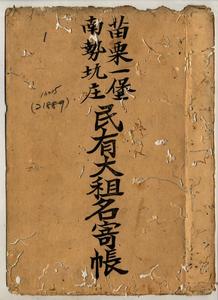 苗栗一堡
南勢坑庄
民有大租名寄帳
1
(21889)